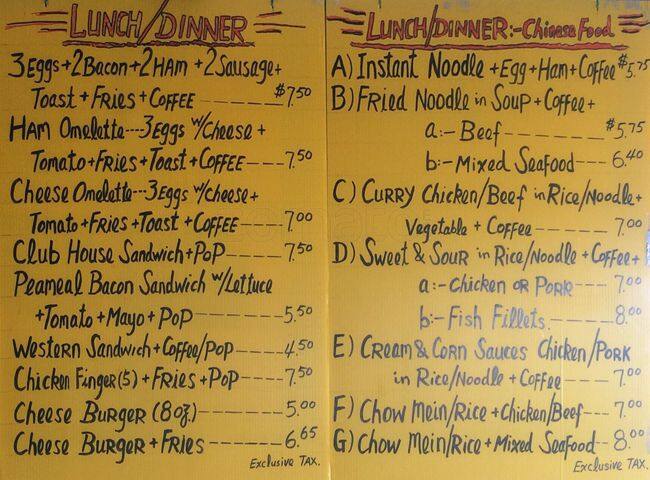 LUNCH/DINNER
3Eggs+2Bacon+2HAM+2Sausage+
Toast+FRies+COFFEE ------ $7.50
HAM Omelette---3Eggs w/Cheese+
Tomato+FRies+Toast+COFFEE----7.50
Cheese Omelette---3Eggs w/cheese+
Tomato+FRies+Toast+COFFEE----7.00
Club House Sandwich+PoP------7.50
Peameal Bacon Sandwich w/Lettuce
+Tomato+Mayo+Pop------5.50
Western Sandwich+Coffee/Pop----4.50
Chicken Finger(5)+FRies+Pop----7.50
Cheese Burger (8oz.)------5.00
Cheese Burger+FRies------6.65
Exclusive TAX.
LUNCH/DINNER:-Chinese Food
A) Instant Noodle+Egg+Ham+Coffee $5.75
B) Fried Noodle in Soup+Coffee+
a:-Beef------- $5.75
b:-Mixed Seafood--- 6.40
C) CURRY Chicken/Beef in Rice/Noodle+
Vegetable+Coffee---- 7.00
D) Sweet & Sour in Rice/Noodle+Coffee+
a:-Chicken OR PORK--- 7.00
b:-Fish Fillets.---- 8.00
E) Cream & Corn Sauces Chicken/PORK
in Rice/Noodle+Coffee---- 7.00
F) Chow Mein/Rice+Chicken/Beef--- 7.00
G) Chow Mein/Rice+Mixed Seafood-- 8.00
Exclusive TAX.